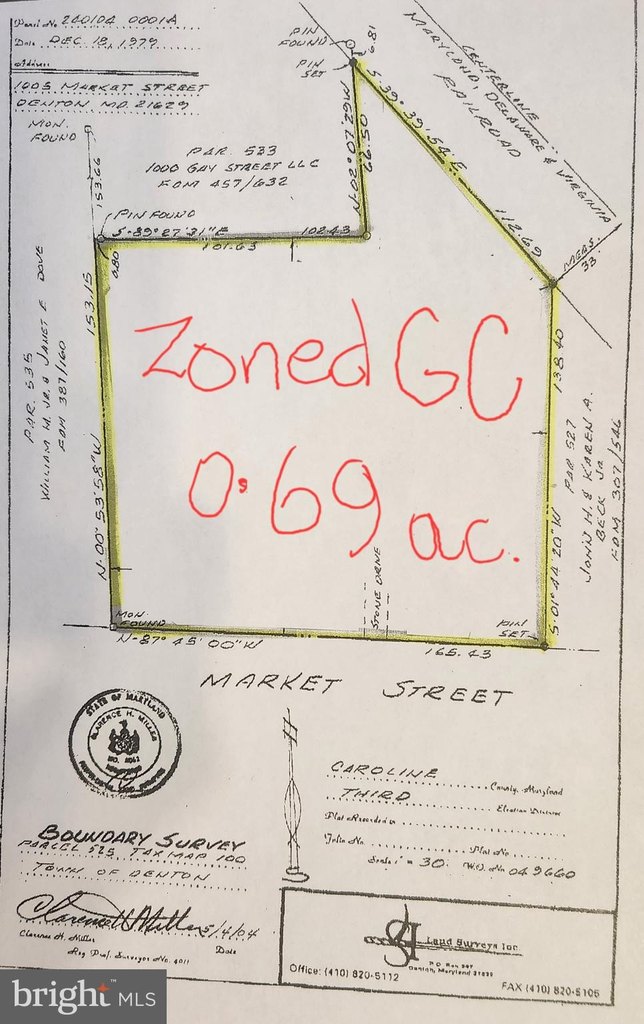 Panel No. 240104 0001A
Date DEC. 18, 1979
Address
1005 MARKET STREET
DENTON, MD. 21629
MON.
FOUND
153.66
PIN
FOUND
6.81
PIN
SET
CENTERLINE
MARYLAND, DELAWARE & VIRGINIA
RAILROAD
S-39° 39' 54" E
112.69
MEAS
33
N-02° 07' 29" W
66.50
PAR. 533
1000 GAY STREET LLC
FDM 457/632
PIN FOUND
S-89° 27' 31" E
102.43
101.63
0.80
153.15
N-00° 53' 58" W
PAR. 535
WILLIAM M. JR. & JANET E. DOVE
FDM 387/160
Zoned GC
0.69 ac.
138.40
S-01° 44' 20" W
PAR 527
JOHN H. & KAREN A.
BECK JR.
FDM 307/546
STONE DRIVE
MON.
FOUND
PIN
SET
N-87° 45' 00" W
165.43
MARKET STREET
STATE OF MARYLAND
CLARENCE H. MILLER
N
S
CAROLINE County, Maryland
THIRD Election District
Plat Recorded in
Folio No. Plat No.
Scale 1" = 30. W.O. No. 049660
BOUNDARY SURVEY
PARCEL 525 TAX MAP 100
TOWN OF DENTON
Clarence H. Miller 5/4/04
Clarence H. Miller Date
Reg. Prof. Surveyor No. 4011
Land Surveys Inc
P O Box 597
Denton, Maryland 21629
Office: (410) 820-5112
FAX (410) 820-5105
bright MLS